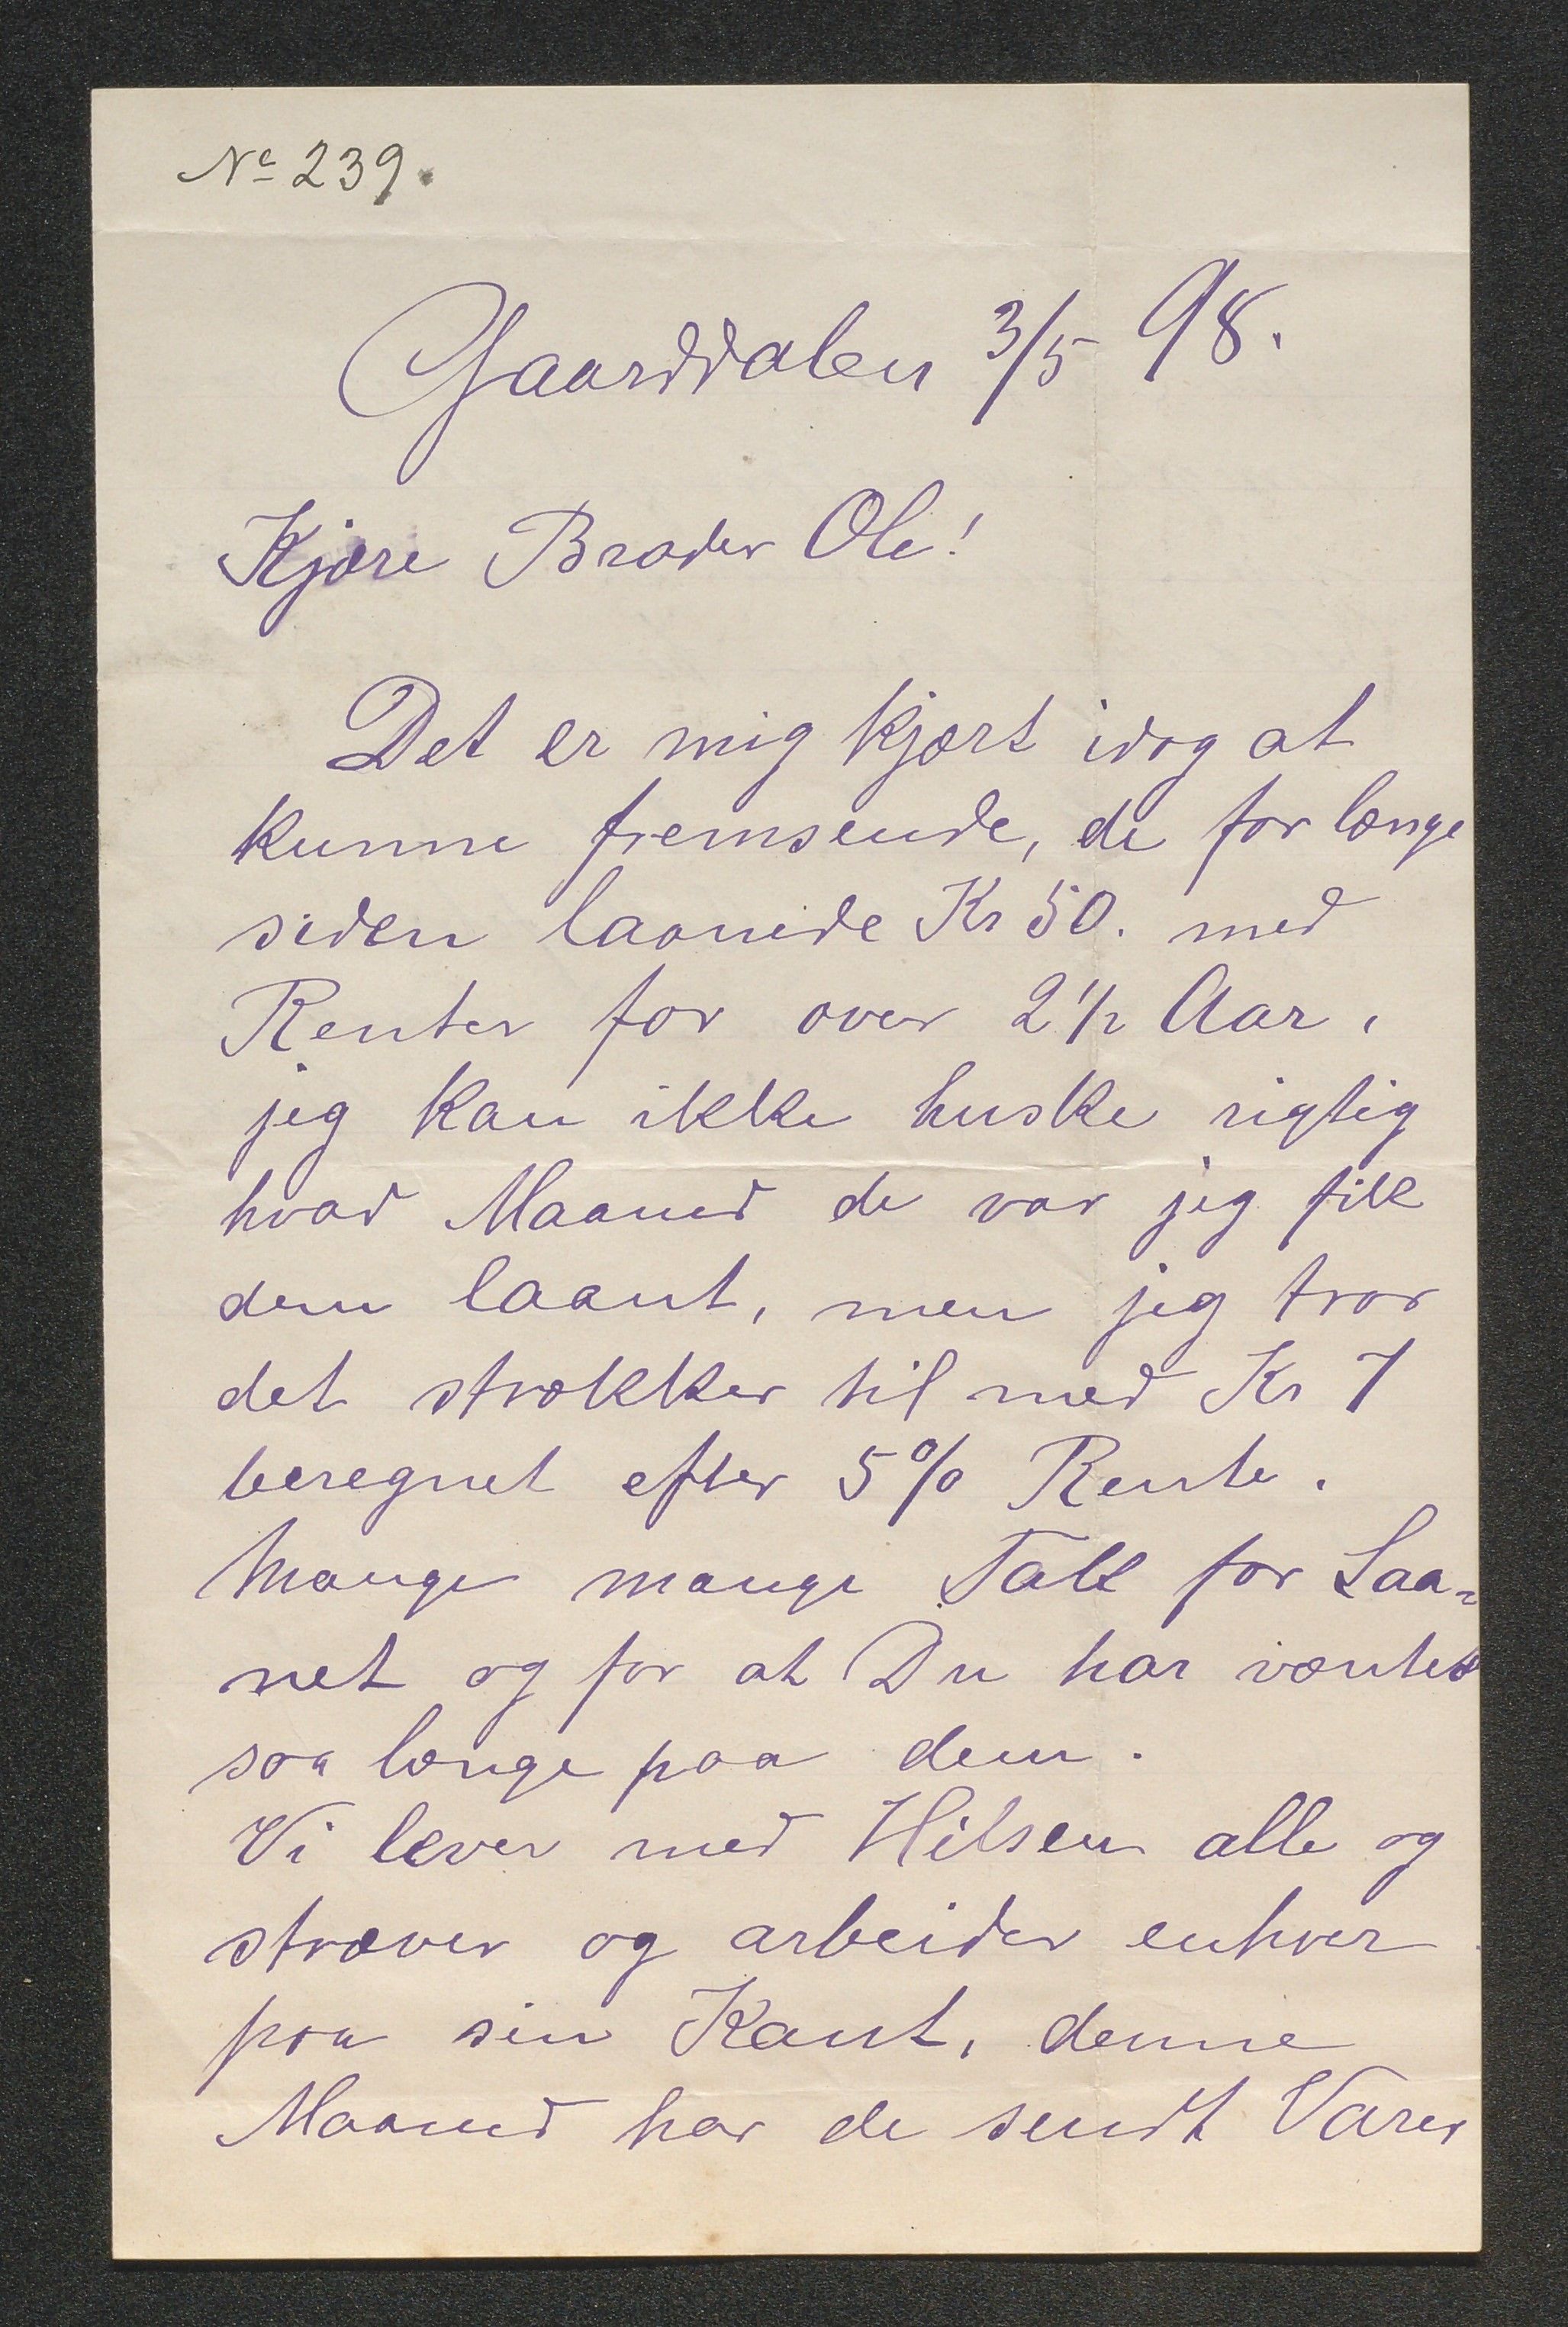 No 239.
Gaarddalen 3/5 98.
Kjære Broder Ole!
Det er mig kjært idag at
kunne fremsende, de for længe
siden laanede Kr 50. med
Renter for over 2 1/2 Aar,
jeg kan ikke huske rigtig
hvad Maaned de var jeg fik
dem laant, men jeg tror
det strækker til med Kr 7
beregnet efter 5% Rente.
Mange mange Takk for Laa-
net og for at Du har væntet
saa længe paa dem.
Vi lever med Hilsen alle og
stræver og arbeider enhver
paa sin Kant, denne
Maaned har de sendt Varer